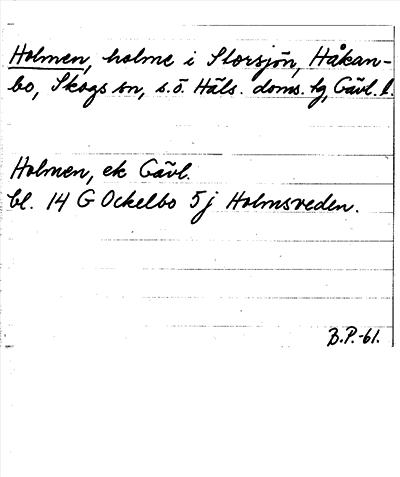 Holmen, holme i Storsjön, Håkan-
bo, Skogs sn, s.ö. Häls. doms. tg, Gävl. l.
Holmen, ek Gävl.
bl. 14 G Ockelbo 5j Holmsveden.
B.P.-61.